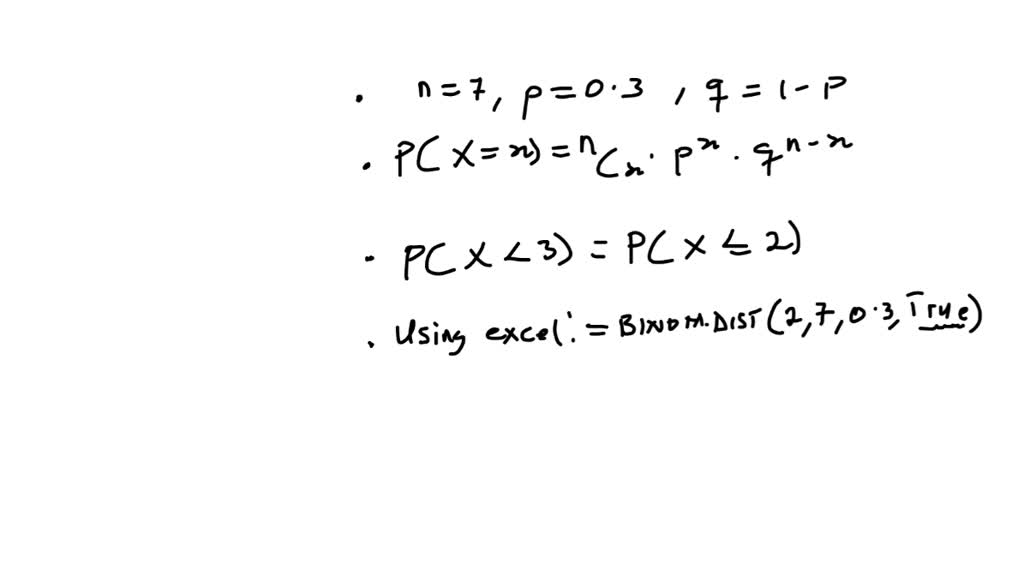 . n = 7, p = 0.3 , q = 1 - P
. P(X = x) = ⁿCₓ. pˣ . qⁿ⁻ˣ
. P(X < 3) = P(X ≤ 2)
. Using excel: = BINOM.DIST(2,7,0.3,True)